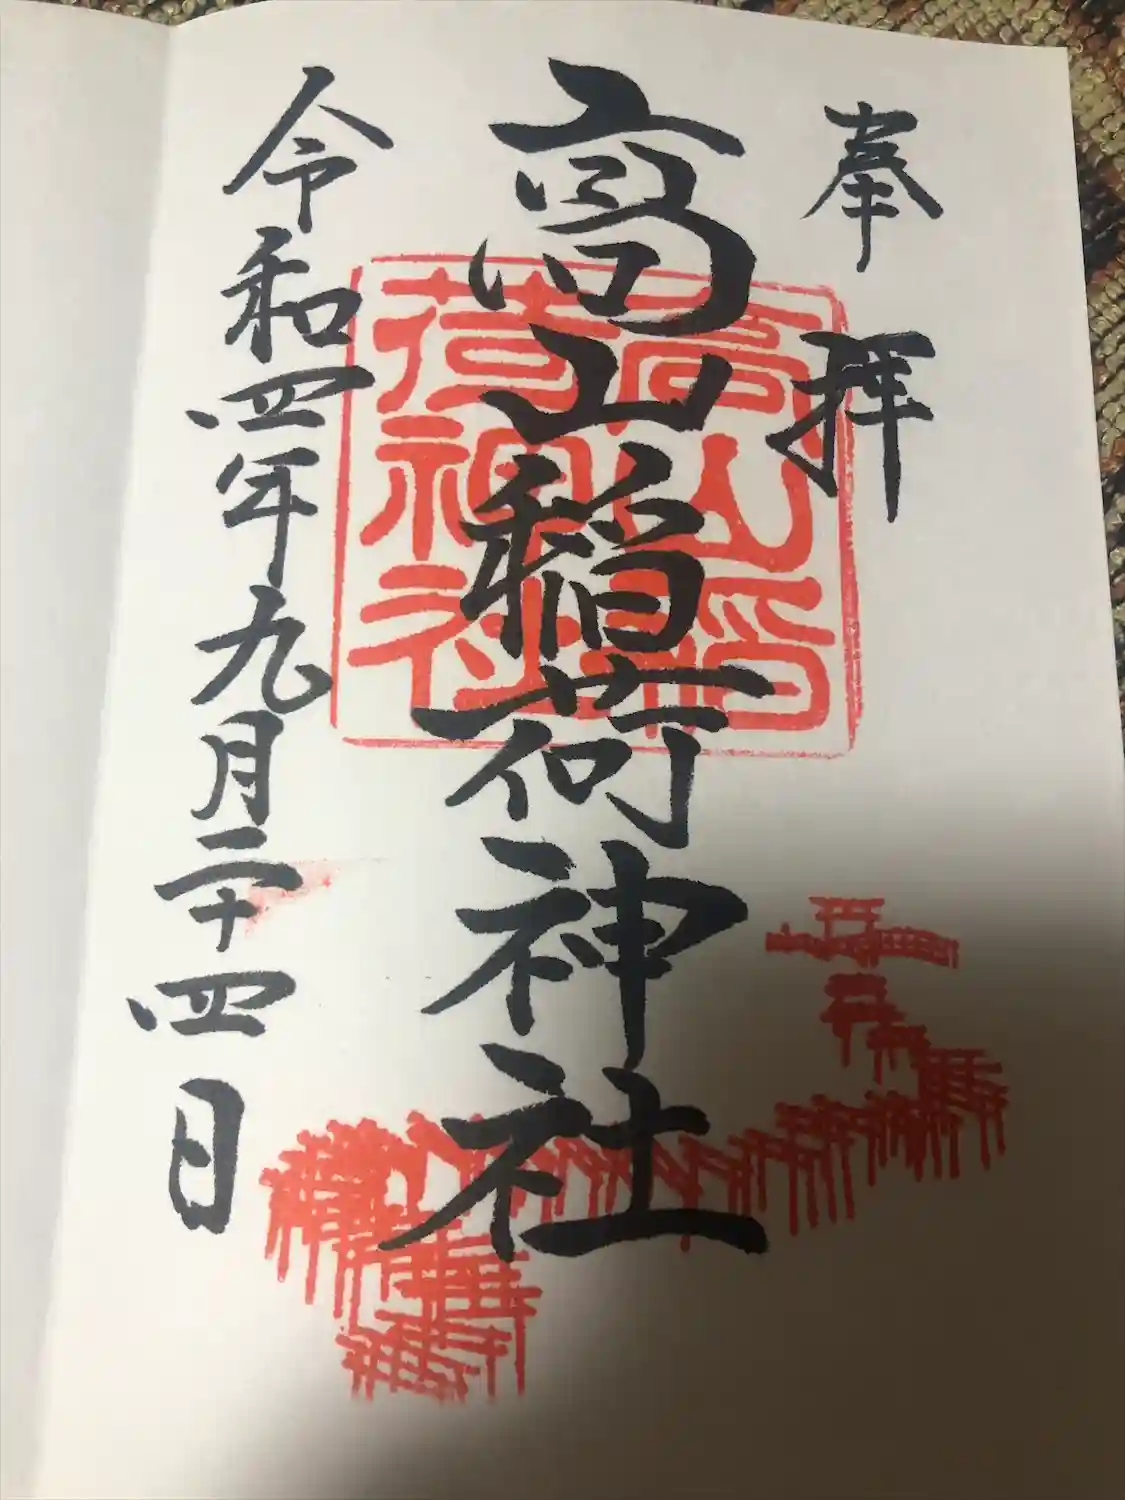 奉拝
高山稲荷神社
高山稲
荷神社
令和四年九月二十四日